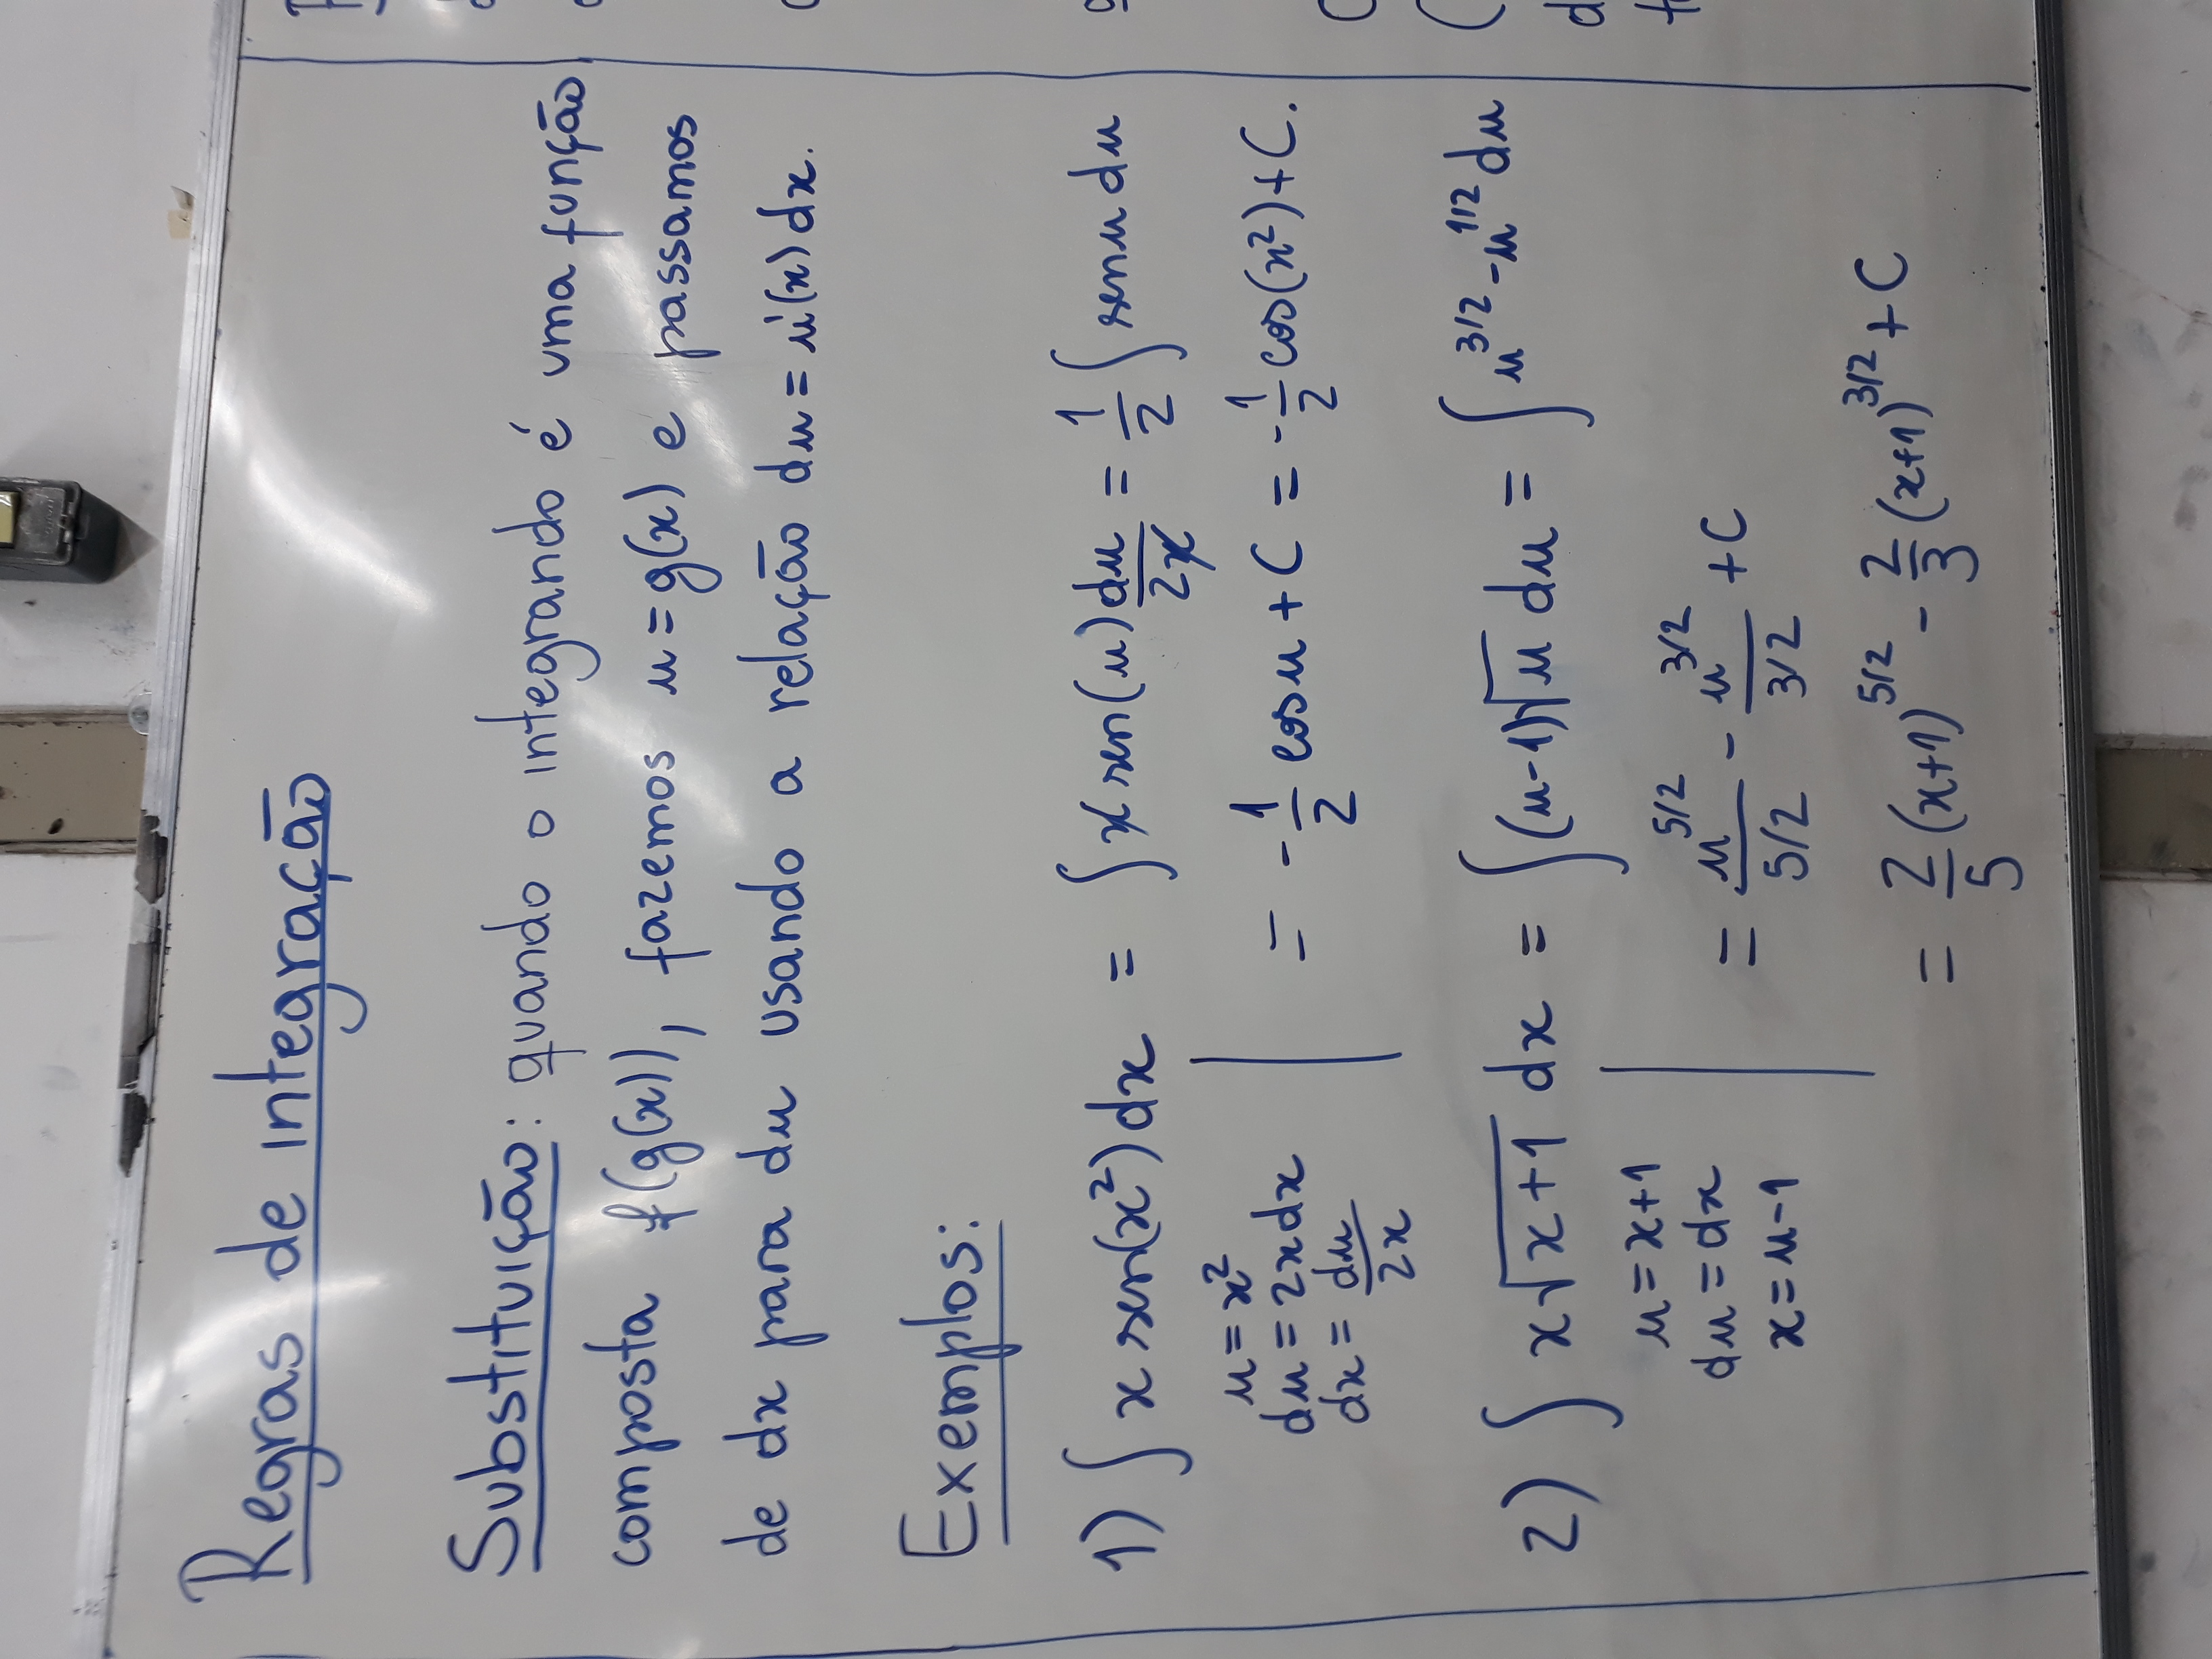 Regras de integração
Substituição: quando o integrando é uma função
composta f(g(x)), fazemos u = g(x) e passamos
de dx para du usando a relação du = u'(x) dx.
Exemplos:
1) ∫ x sen(x²) dx = ∫ x sen(u) du/2x = 1/2 ∫ sen u du
u = x²
du = 2x dx
dx = du/2x
= -1/2 cos u + C = -1/2 cos(x²) + C.
2) ∫ x√(x+1) dx = ∫ (u-1)√u du = ∫ u^3/2 - u^1/2 du
u = x+1
du = dx
x = u-1
= u^5/2/5/2 - u^3/2/3/2 + C
= 2/5 (x+1)^5/2 - 2/3 (x+1)^3/2 + C